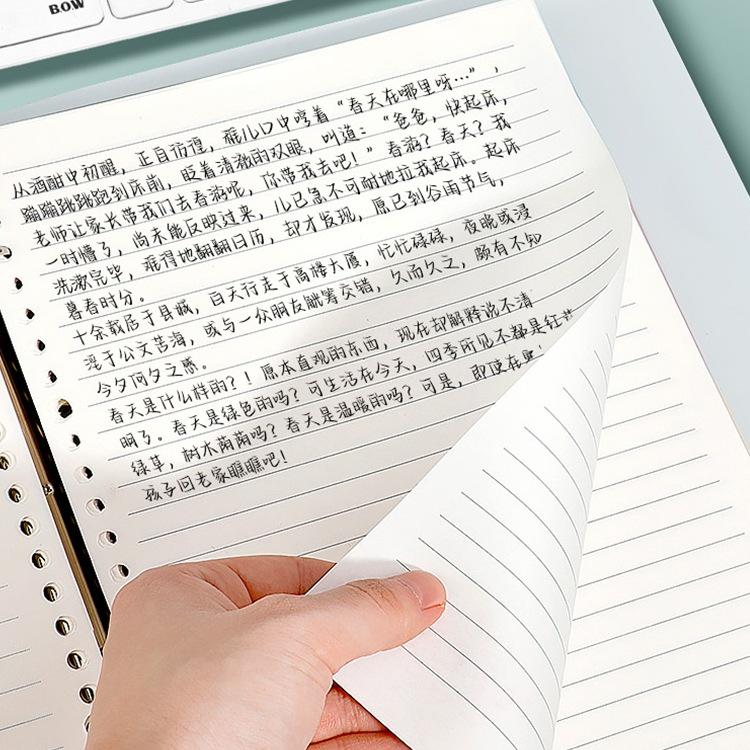 BOW
从酒酣中初醒，正自彷徨，稚儿口中哼着“春天在哪里呀…”，
蹦蹦跳跳跑到床前，眨着清澈的双眼，叫道：“爸爸，快起床，
老师让家长带我们去春游呢，你带我去吧！”春游？春天？我
一时懵了，尚未能反映过来，儿已急不可耐地拉我起床。起床
洗漱完毕，难得地翻翻日历，却才发现，原已到谷雨节气，
暮春时分。
十余载居于县城，白天行走于高楼大厦，忙忙碌碌，夜晚或浸
淫于公文苦海，或与一众朋友觥筹交错，久而久之，颇有不知
今夕何夕之感。
春天是什么样的？！原本直观的东西，现在却解释说不清
啊了。春天是绿色的吗？可生活在今天，四季所见不都是红
绿草，树木荫荫吗？春天是温暖的吗？可是，即使在
孩子回老家瞧瞧吧！